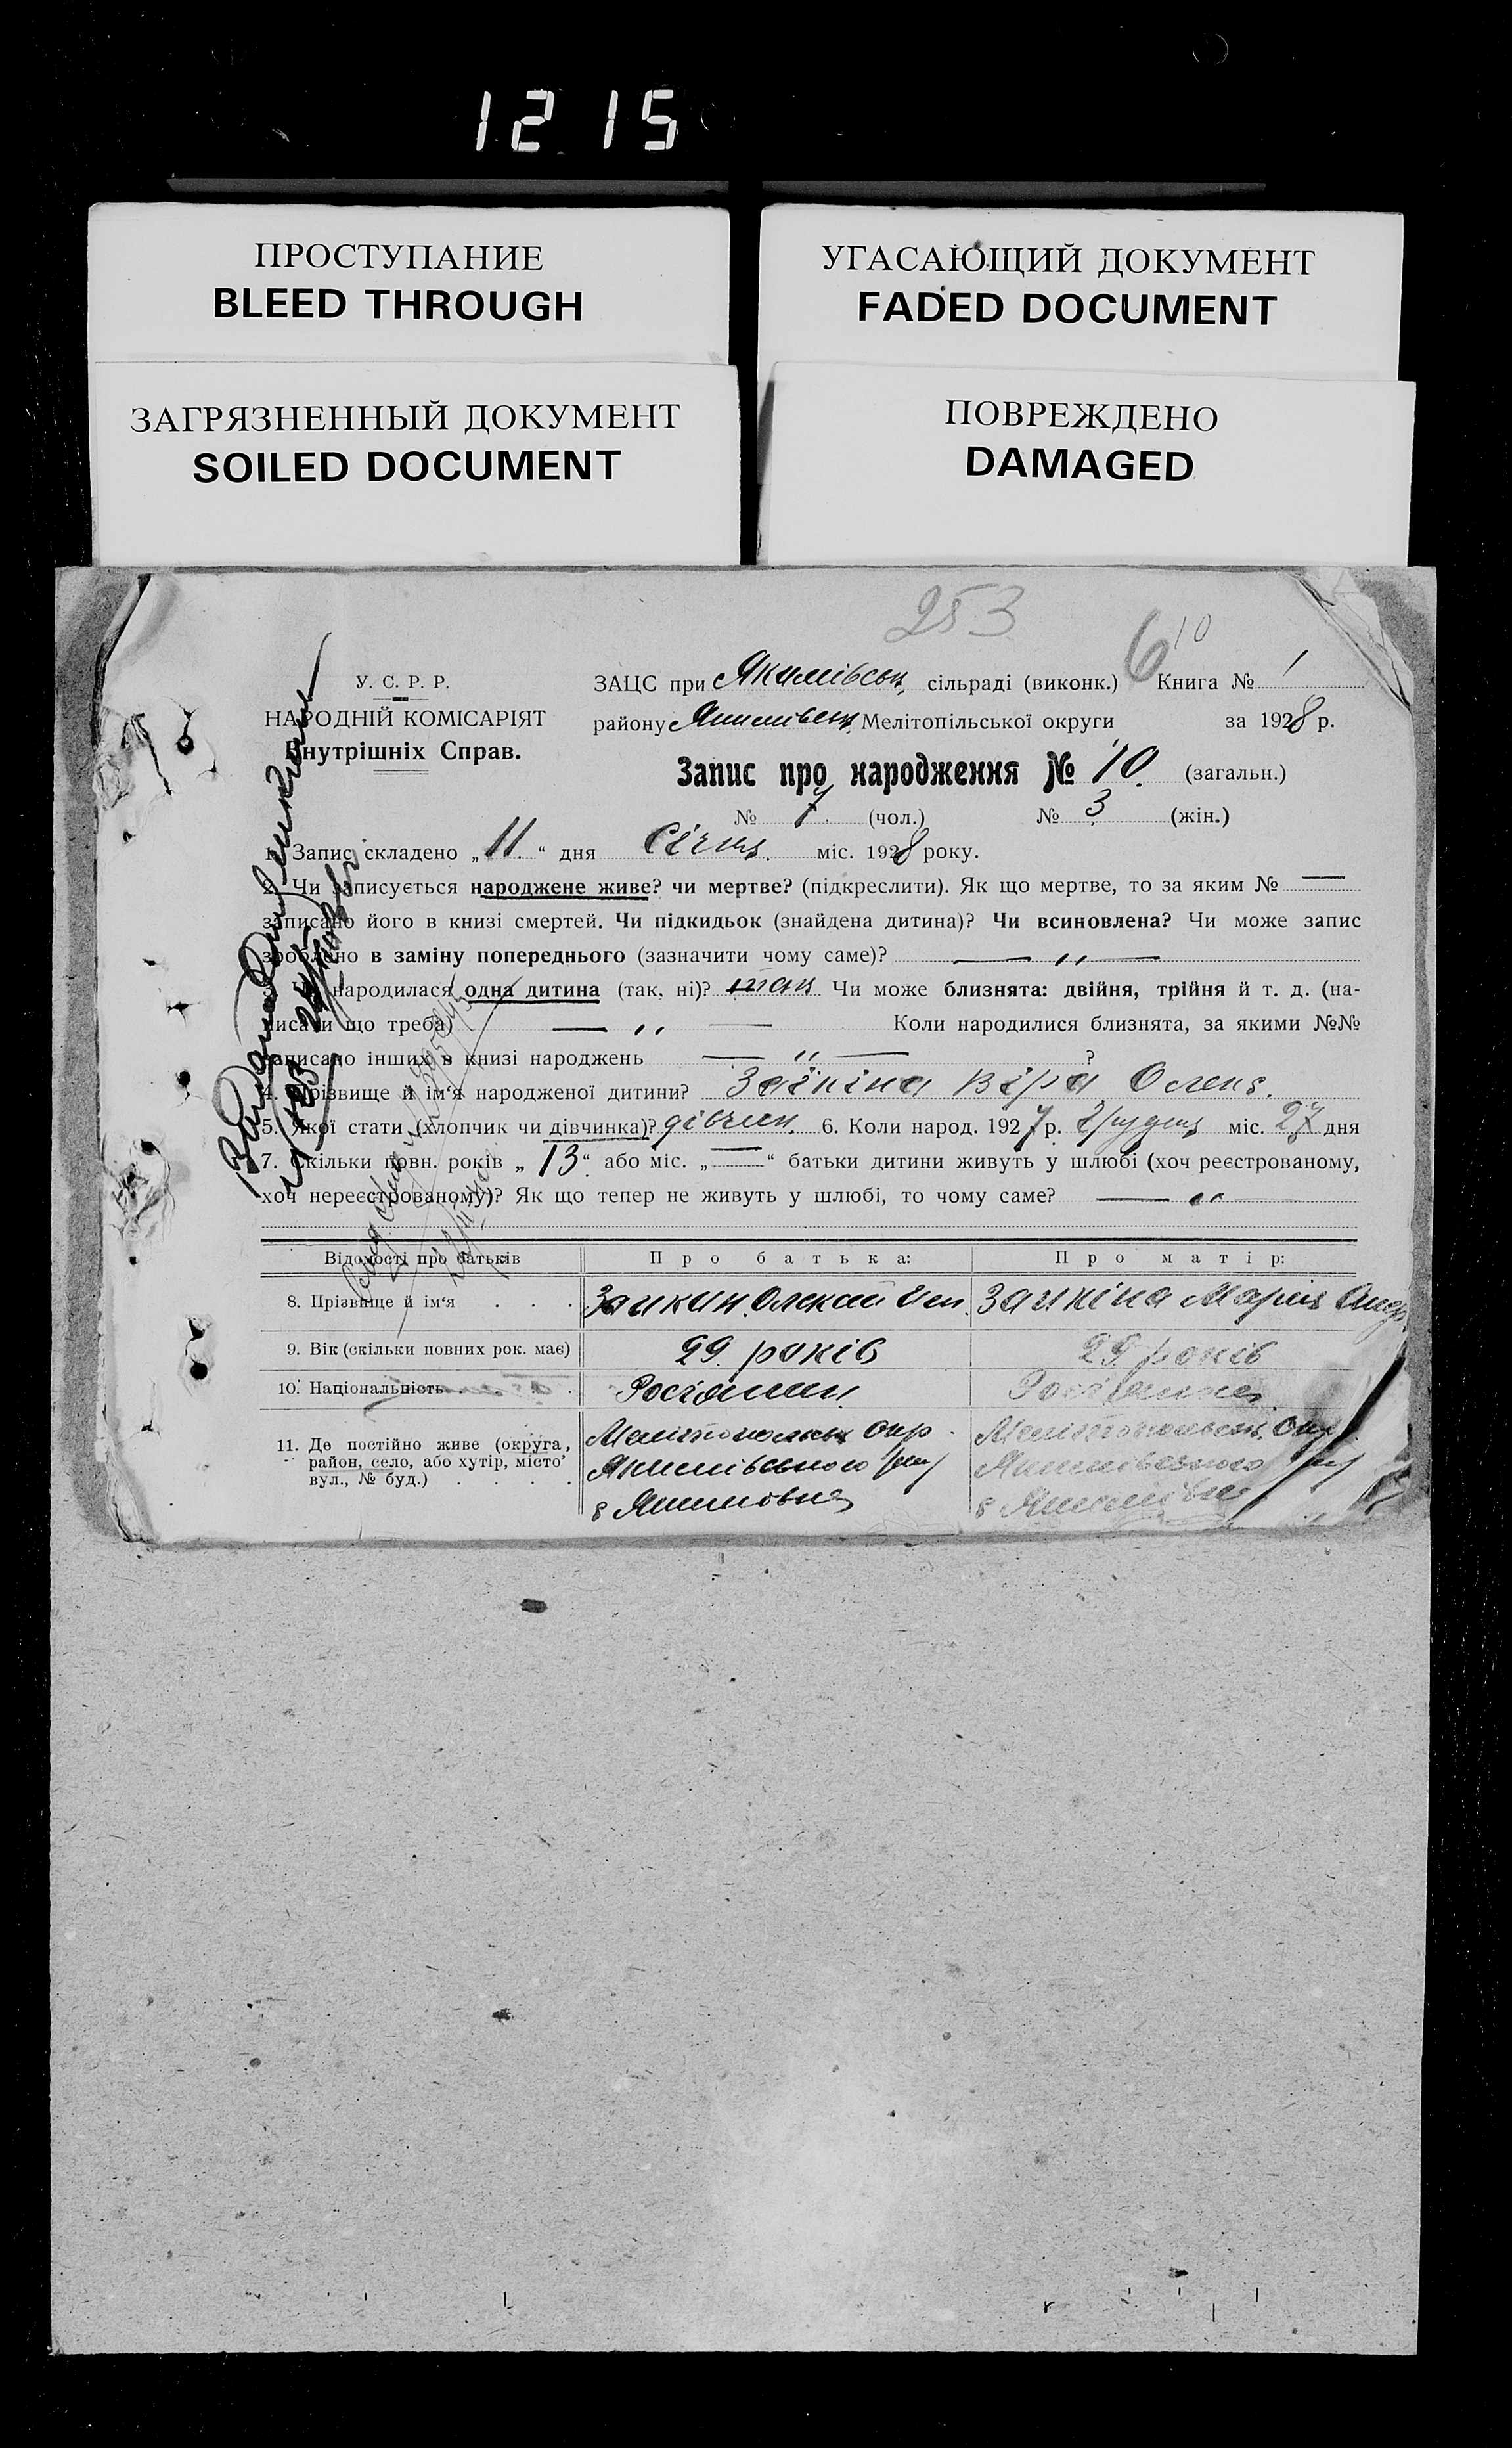 1215
ПРОСТУПАНИЕ
BLEED THROUGH
УГАСАЮЩИЙ ДОКУМЕНТ
FADED DOCUMENT
ЗАГРЯЗНЕННЫЙ ДОКУМЕНТ
SOILED DOCUMENT
ПОВРЕЖДЕНО
DAMAGED
253
6 10
У. С. Р. Р.
НАРОДНІЙ КОМІСАРІЯТ
Внутрішніх Справ.
ЗАЦС при Якимівськ. сільраді (виконк.) Книга № 1
району Якимівськ. Мелітопільської округи за 1928 р.
Запис про народження № 10. (загальн.)
№ 7. (чол.) № 3 (жін.)
1. Запис складено „11.“ дня Січня. міс. 1928 року.
2. Чи записується народжене живе? чи мертве? (підкреслити). Як що мертве, то за яким № —
записано його в книзі смертей. Чи підкидьок (знайдена дитина)? Чи всиновлена? Чи може запис
зроблено в заміну попереднього (зазначити чому саме)? — „ —
3. Чи народилася одна дитина (так, ні)? так Чи може близнята: двійня, трійня й т. д. (на-
писати що треба) — „ — Коли народилися близнята, за якими №№
записано інших в книзі народжень — „ — ?
4. Прізвище й ім‘я народженої дитини? Заікіна Віра Олекс.
5. Якої стати (хлопчик чи дівчинка)? дівчин. 6. Коли народ. 1927 р. Грудня міс. 27 дня
7. Скільки повн. років „13“ або міс. „—“ батьки дитини живуть у шлюбі (хоч реєстрованому,
хоч нереєстрованому)? Як що тепер не живуть у шлюбі, то чому саме? — „
Відомості про батьків Про батька: Про матір:
8. Прізвище й ім‘я . . . Заикин. Олексій Заикіна Марія Андр.
9. Вік (скільки повних рок. має) 29. років 29. років
10. Національність . . . Росіянин. Росіянка
11. Де постійно живе (округа,
район, село, або хутір, місто
вул., № буд.) . . . .
Мелітопольск Окр. Мелітопольськ. Окр.
Якимівського Якимівского
с Якимовка с Якимівка